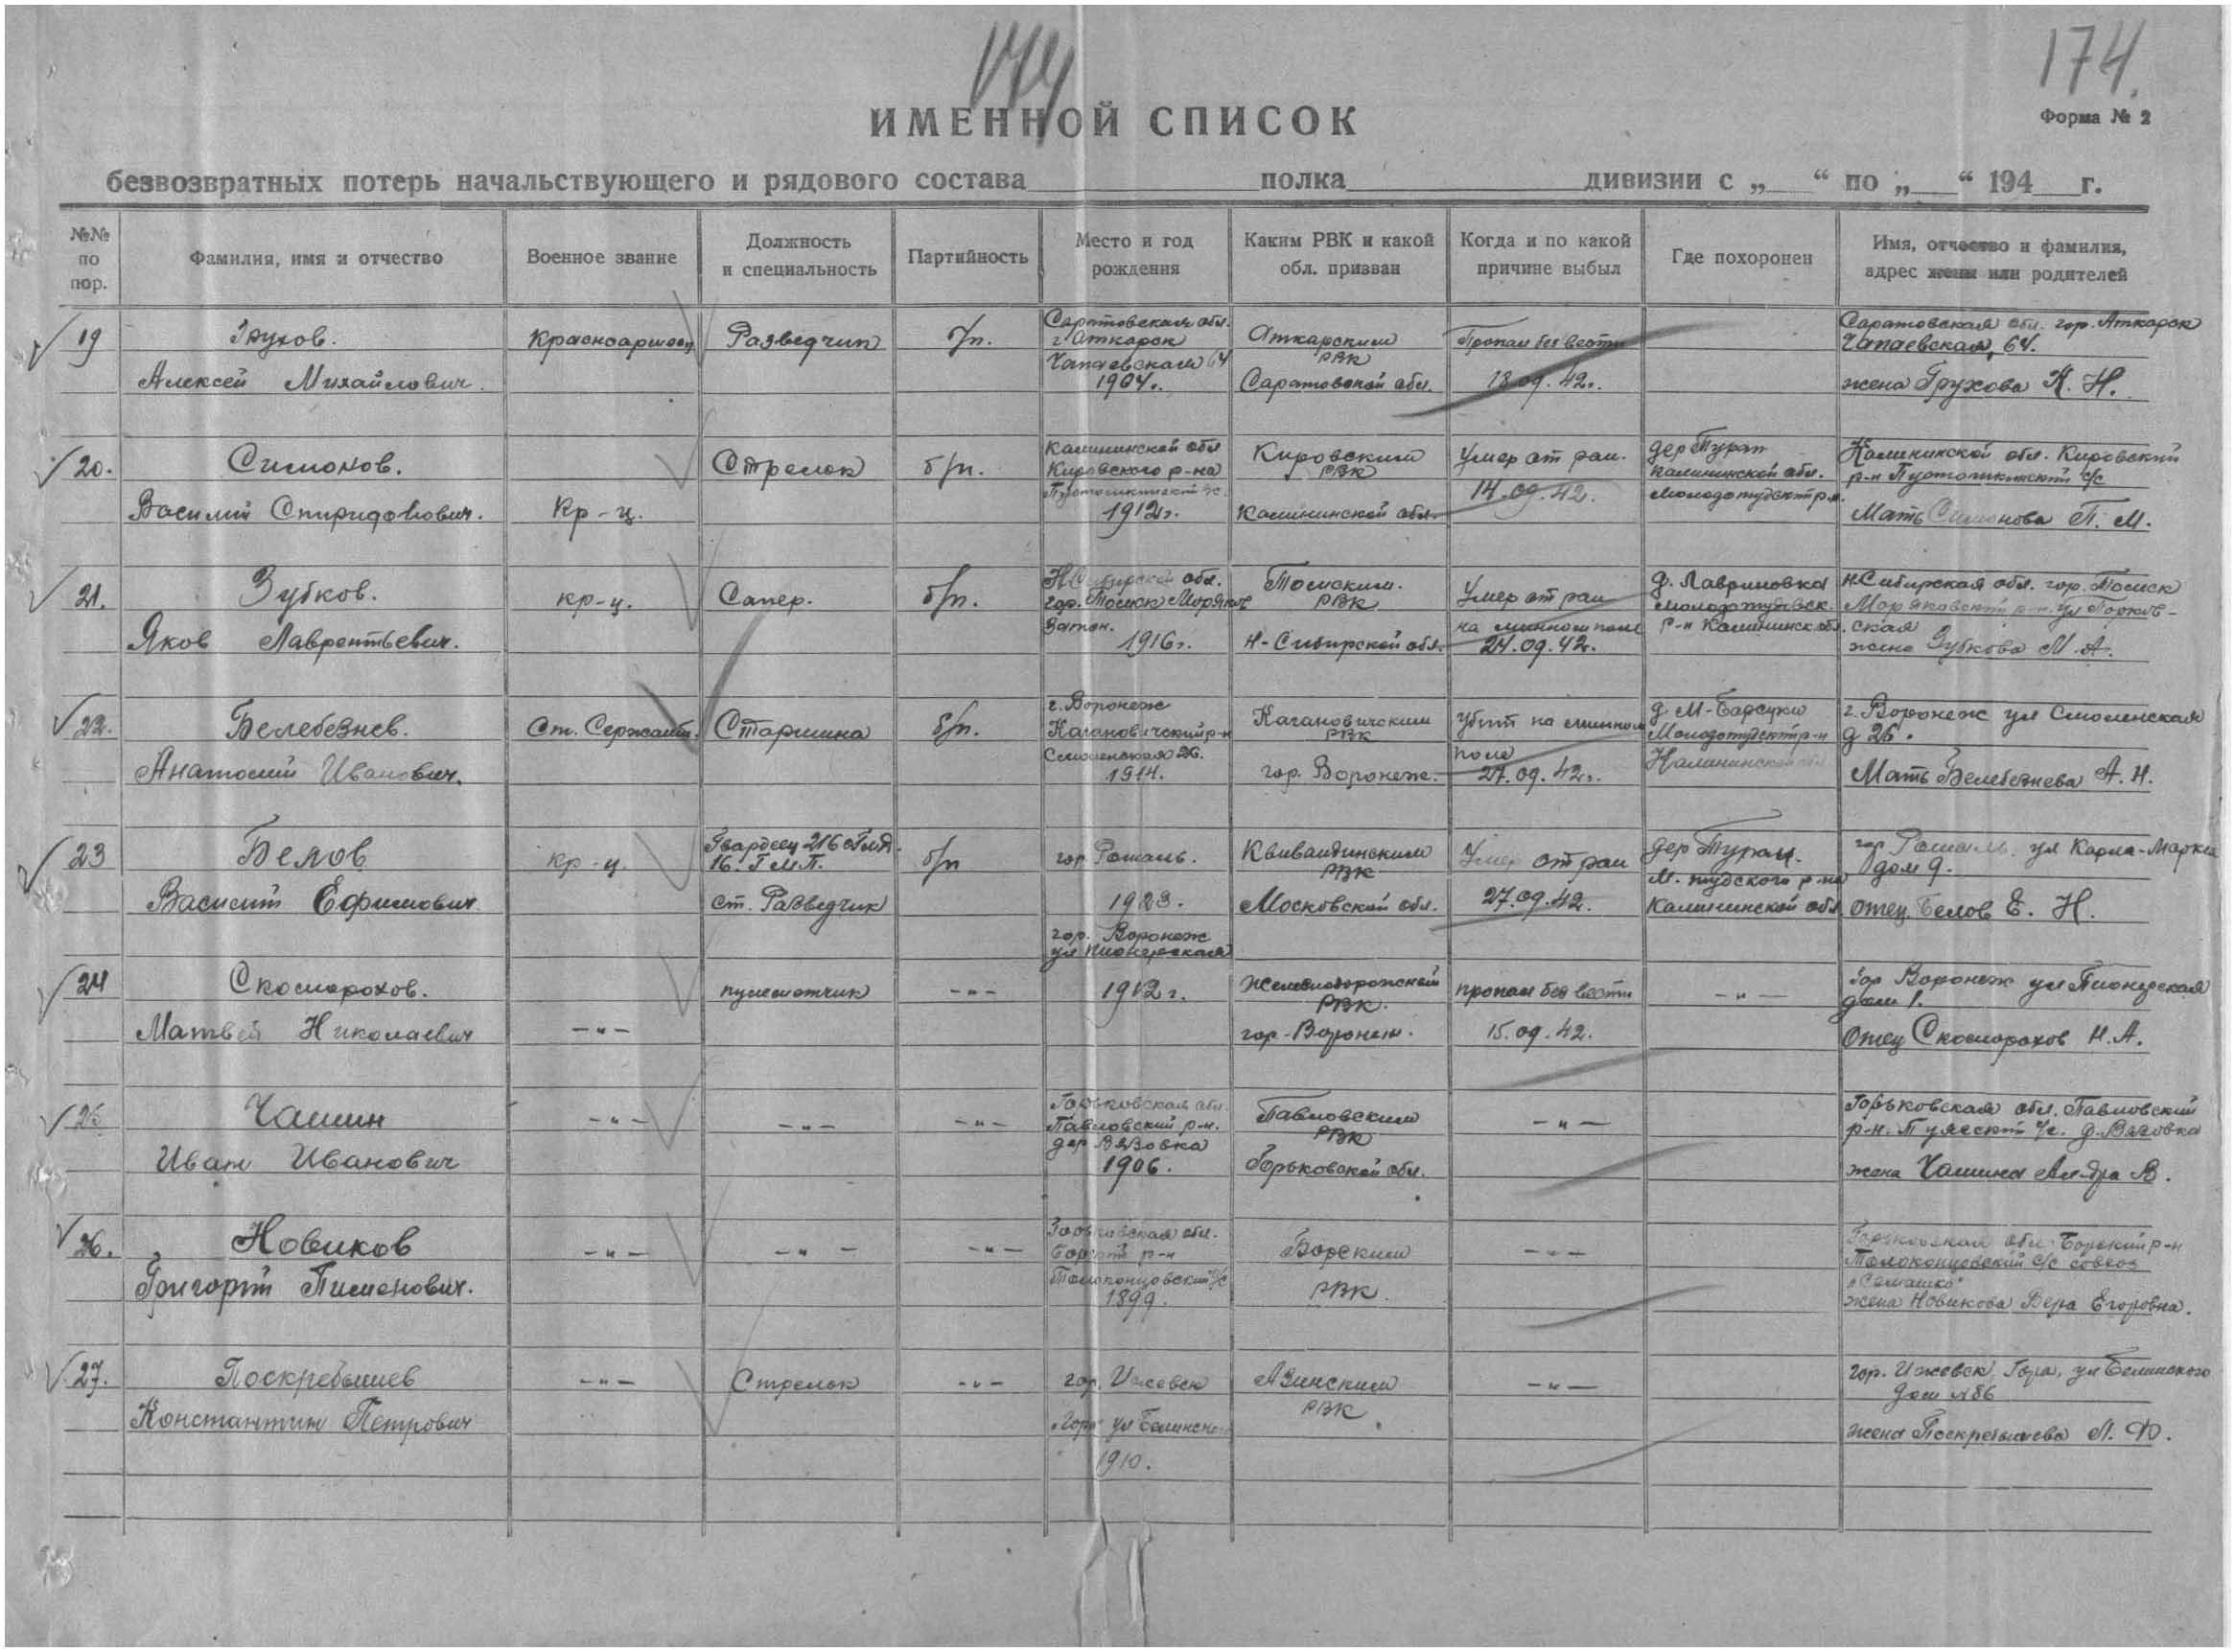 174
174.
ИМЕННОЙ СПИСОК
Форма № 2
безвозвратных потерь начальствующего и рядового состава полка дивизии с „ “ по „ “ 194 г.
№№ по пор.
Фамилия, имя и отчество
Военное звание
Должность и специальность
Партийность
Место и год рождения
Каким РВК и какой обл. призван
Когда и по какой причине выбыл
Где похоронен
Имя, отчество и фамилия, адрес жены или родителей
19
Грухов.
Алексей Михайлович.
Красноармеец
Разведчик
б/п.
Саратовская обл.
г. Аткарск
Чапаевская 64
1904г.
Аткарским
РВК
Саратовской обл.
Пропал без вести
18.09.42г.
Саратовская обл. гор. Аткарск
Чапаевская, 64.
жена Грухова К. Н.
20.
Симонов.
Василий Спиридонович.
Кр-ц.
Стрелок
б/п.
Калининской обл
Кировского р-на
1912г.
Кировским
РВК
Калининской обл.
Умер от ран.
14.09.42.
дер Турат
Калининской обл.
Молодотудский р-н.
Калининской обл. Кировский
р-н с/с
Мать Симонова П. М.
21.
Зубков.
Яков Лаврентьевич.
кр-ц.
Сапер.
б/п.
Н Сибирской обл.
гор. Томск
Затон.
1916г.
Томским.
РВК
Н-Сибирской обл.
Умер от ран
на минном поле
24.09.42г.
д. Лавриновка
Молодотудовск.
р-н Калининск обл.
Н.Сибирская обл. гор. Томск
Моряковский р-н. ул
ская
жена Зубкова М. А.
22.
Белебезнев.
Анатолий Иванович.
Ст. Сержант.
Старшина
б/п.
г. Воронеж
Кагановичский р-н
Смоленская 26.
1914.
Кагановичским
РВК
гор. Воронеж.
убит на минном
поле
27.09.42г.
д. М-Барсуки
Молодотудский р-н
Калининской обл
г. Воронеж ул Смоленская
д 26.
Мать Белебезнева А. Н.
23
Белов
Василий Ефимович
кр-ц.
Гвардеец 216
16. Г М.П.
ст. Разведчик
б/п
гор. Рошаль.
1923.
РВК
Московской обл.
Умер от ран
27.09.42.
дер Турат.
М. тудского р-на
Калининской обл
гор. Рошаль. ул Карла-Маркса
дом 9.
отец Белов Е. Н.
24
Скоморохов.
Матвей Николаевич
-"-
пулеметчик
-"-
гор. Воронеж
ул Пионерская
1912г.
Железнодорожный
РВК.
гор-Воронеж.
пропал без вести
15.09.42.
-"-
Гор Воронеж ул Пионерская
дом 1.
Отец Скоморохов Н.А.
25
Чашин
Иван Иванович
-"-
-"-
-"-
Горьковская обл.
Павловский р-н.
дер Вязовка
1906.
Павловским
РВК
Горьковской обл.
-"-
Горьковская обл. Павловский
р-н. с/с. д. Вязовка
жена Чашина Ал-дра В.
26.
Новиков
Григорий Пименович.
-"-
-"-
-"-
Горьковская обл.
Борский р-н
Толоконцовский с/с
1899.
Борским
РВК.
-"-
Горьковская обл. Борский р-н
Толоконцовский с/с совхоз
"Семашко"
жена Новикова Вера Егоровна.
27.
Поскребышев
Константин Петрович
-"-
Стрелок
-"-
гор. Ижевск
"Гора" ул Белинского
1910.
Азинским
РВК
-"-
гор. Ижевск, Гора, ул Белинского
дом №86
жена Поскребышева Л. Ф.